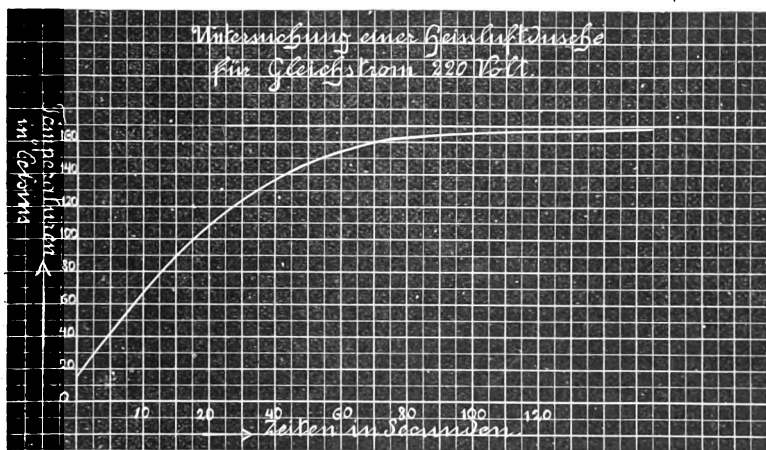 Untersuchung einer Heissluftdusche
für Gleichstrom 220 Volt.
Temperaturen
in Celsius
160
140
120
100
80
60
40
20
0
10 20 40 60 80 100 120
Zeiten in Secunden